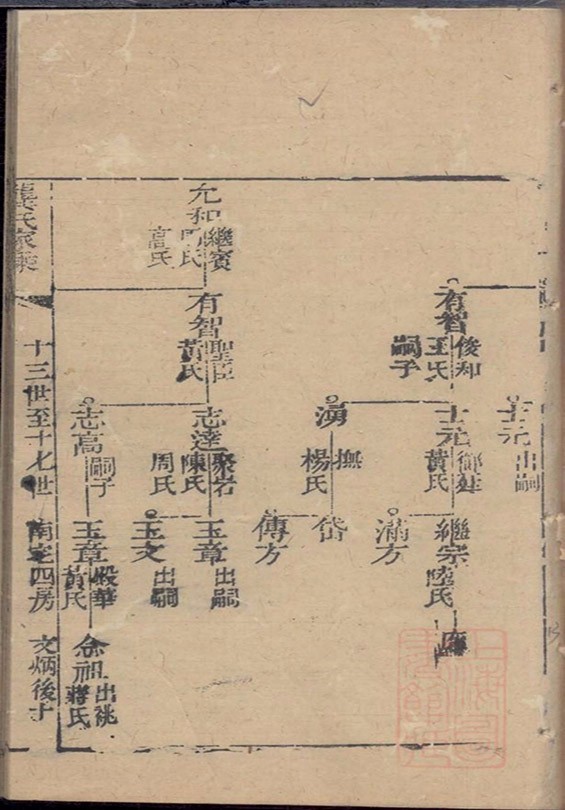 士元 出嗣
有智 俊和
王氏
嗣子
士元 御廷
黃氏
繼宗 陸氏
滿方
湧 撫
楊氏
岱
傳方
允和 繼賓
氏
高氏
有智 聖臣
黃氏
志達 聚岩
陳氏
周氏
玉章 出嗣
玉文 出嗣
志高 嗣子
玉章 殿華
黃氏
念祖 出祧
蔣氏
龔氏家乘
十三世至十七世
南宅四房
文炳後十